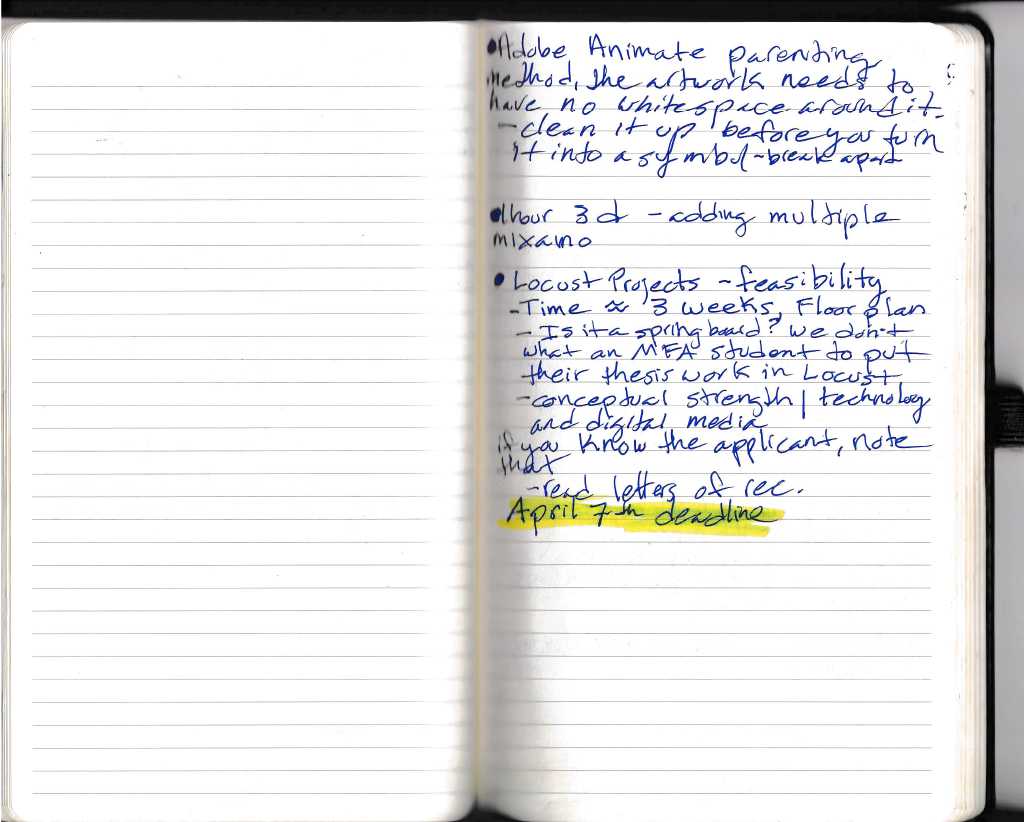 •Adobe Animate parenting
method, the artwork needs to
have no whitespace around it.
-clean it up before you turn
it into a symbol-break apart
•1hour 3d -adding multiple
mixamo
• Locust Projects -feasibility
-Time ≈ 3 weeks, Floor plan
- Is it a springboard? we don't
what an MFA student to put
their thesis work in Locust
-conceptual strength | technology
and digital media
if you know the applicant, note
that
-read letters of rec.
April 7th deadline